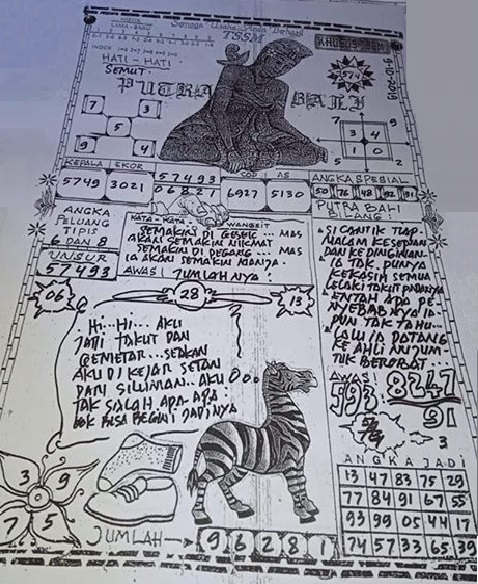 Semoga
TSSM
KHUSUS TSSM
9-10-2019
INDEX
HATI - HATI
SEMUT
574
PUTRA BALI
7 3
5
9 4
7 9
3 4
1 0
5 2
KEPALA EKOR
5749 3021
57493
06821
COD AS
6927 5130
ANGKA SPESIAL
50 76 48 92 31
ANGKA
PELUANG
TIPIS
6 DAN 8
UNSUR
57493
KATA - KATA WANGSIT
SEMAKIN DI GESEK ... MAS
AKAN SEMAKIN NIKMAT
SEMAKIN DI PEGANG ... MAS
IA AKAN SEMAKIN MANJA
AWAS! JUMLAHNYA:
PUTRA BALI
BILANG:
SI CANTIK TIAP
MALAM KESEPIAN
DAN KEDINGINAN
IA TAK PUNYA
KEKASIH SEMUA
LELAKI TAKUT PADANYA
ENTAH APA PE
NYEBABNYA IA
PUN TAK TAHU...
LALU IA DATANG
KE AHLI
TUK BEROBAT...
06
28
13
HI... HI... AKU
JADI TAKUT DAN
GEMETAR... SEAKAN
AKU DI KEJAR SETAN
DAN SILUMAN.. AKU
TAK SALAH APA-APA
KOK BISA BEGINI JADINYA
AWAS:
593 8247
91
3
ANGKA JADI
13 47 83 75 29
77 84 91 67 55
93 99 05 44 17
74 57 33 65 39
3 9
7 5
JUMLAH → 9 6 2 8 1